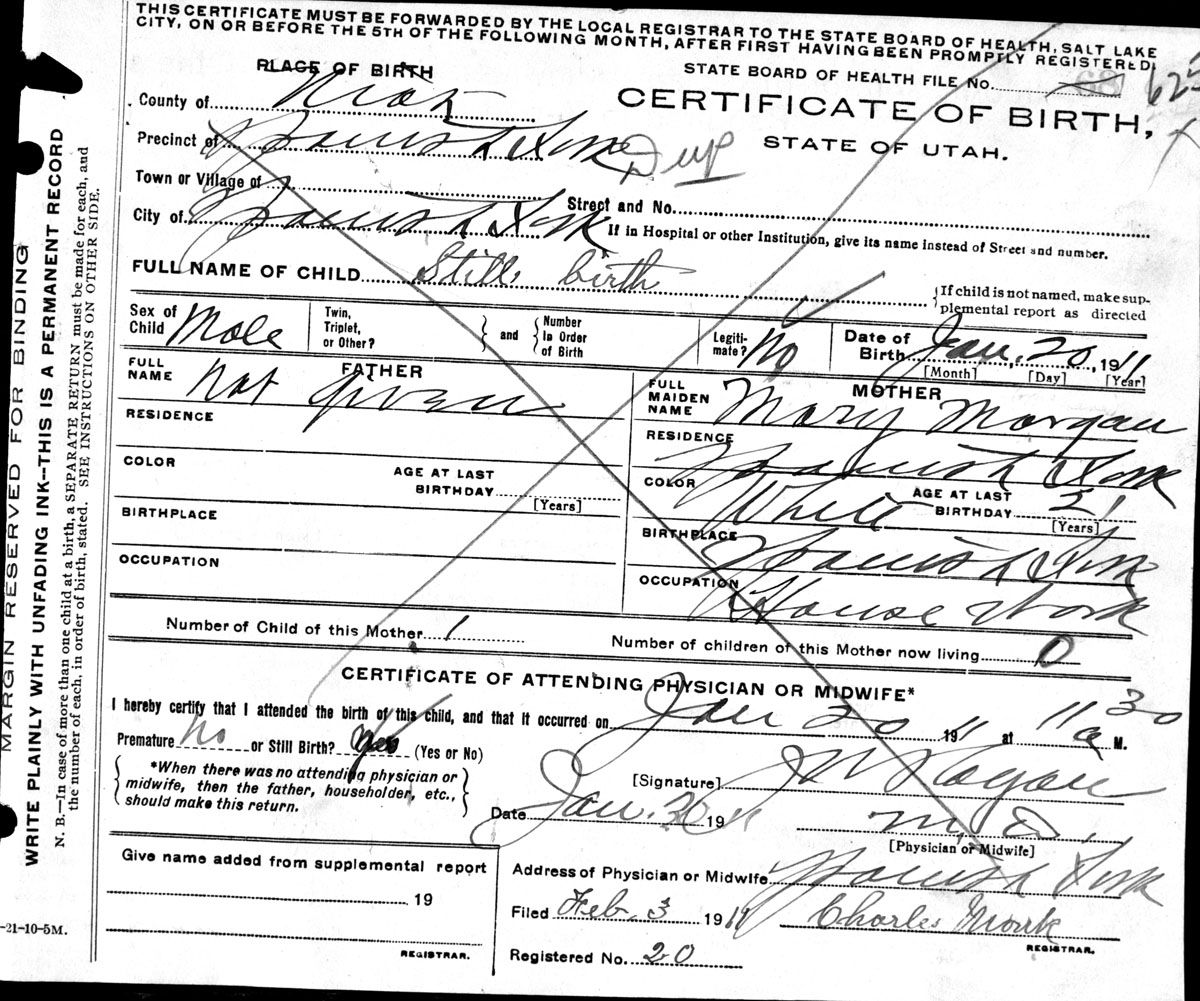 THIS CERTIFICATE MUST BE FORWARDED BY THE LOCAL REGISTRAR TO THE STATE BOARD OF HEALTH, SALT LAKE
CITY, ON OR BEFORE THE 5TH OF THE FOLLOWING MONTH, AFTER FIRST HAVING BEEN PROMPTLY REGISTERED.
PLACE OF BIRTH
STATE BOARD OF HEALTH FILE NO. 68 625
County of Utah
CERTIFICATE OF BIRTH,
STATE OF UTAH.
Precinct of Spanish Fork Dup
Town or Village of
Street and No.
City of Spanish Fork
If in Hospital or other Institution, give its name instead of Street and number.
FULL NAME OF CHILD Still birth
{If child is not named, make sup-
plemental report as directed
Sex of Child Male
Twin, Triplet, or Other?
and
Number In Order of Birth
Legiti-mate? No
Date of Birth Jan. 20, 1911
[Month] [Day] [Year]
FATHER
FULL NAME Not given
RESIDENCE
COLOR
AGE AT LAST BIRTHDAY
[Years]
BIRTHPLACE
OCCUPATION
MOTHER
FULL MAIDEN NAME Mary Morgan
RESIDENCE Spanish Fork
COLOR White
AGE AT LAST BIRTHDAY 21
[Years]
BIRTHPLACE Spanish Fork
OCCUPATION House Work
Number of Child of this Mother 1
Number of children of this Mother now living 0
CERTIFICATE OF ATTENDING PHYSICIAN OR MIDWIFE*
I hereby certify that I attended the birth of this child, and that it occurred on Jan 20 1911 at 11 30 a M.
Premature No or Still Birth? Yes (Yes or No)
*When there was no attending physician or
midwife, then the father, householder, etc.,
should make this return.
[Signature]
Date Jan. 30 1911
M. D.
[Physician or Midwife]
Give name added from supplemental report
19
REGISTRAR.
Address of Physician or Midwife Spanish Fork
Filed Feb. 3 1911
Charles Monk
REGISTRAR.
Registered No. 20
-21-10-5M.
MARGIN RESERVED FOR BINDING
WRITE PLAINLY WITH UNFADING INK--THIS IS A PERMANENT RECORD
N. B.—In case of more than one child at a birth, a SEPARATE RETURN must be made for each, and
the number of each, in order of birth, stated. SEE INSTRUCTIONS ON OTHER SIDE.